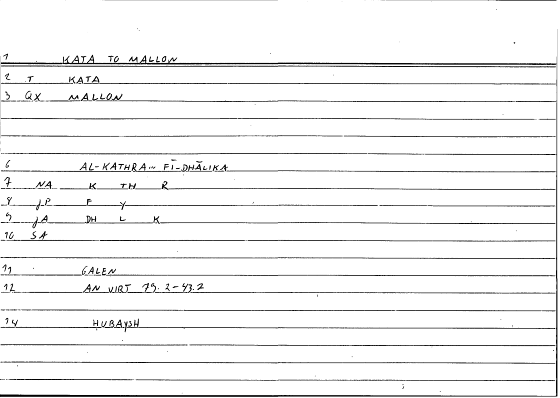 1 KATA TO MALLON
2 T KATA
3 QX MALLON
6 AL-KATHRA.. FĪ-DHĀLIKA
7 NA K TH R
8 JP F Y
9 JA DH L K
10 SA
11 GALEN
12 AN VIRT 79.2-43.2
14 HUBAYSH